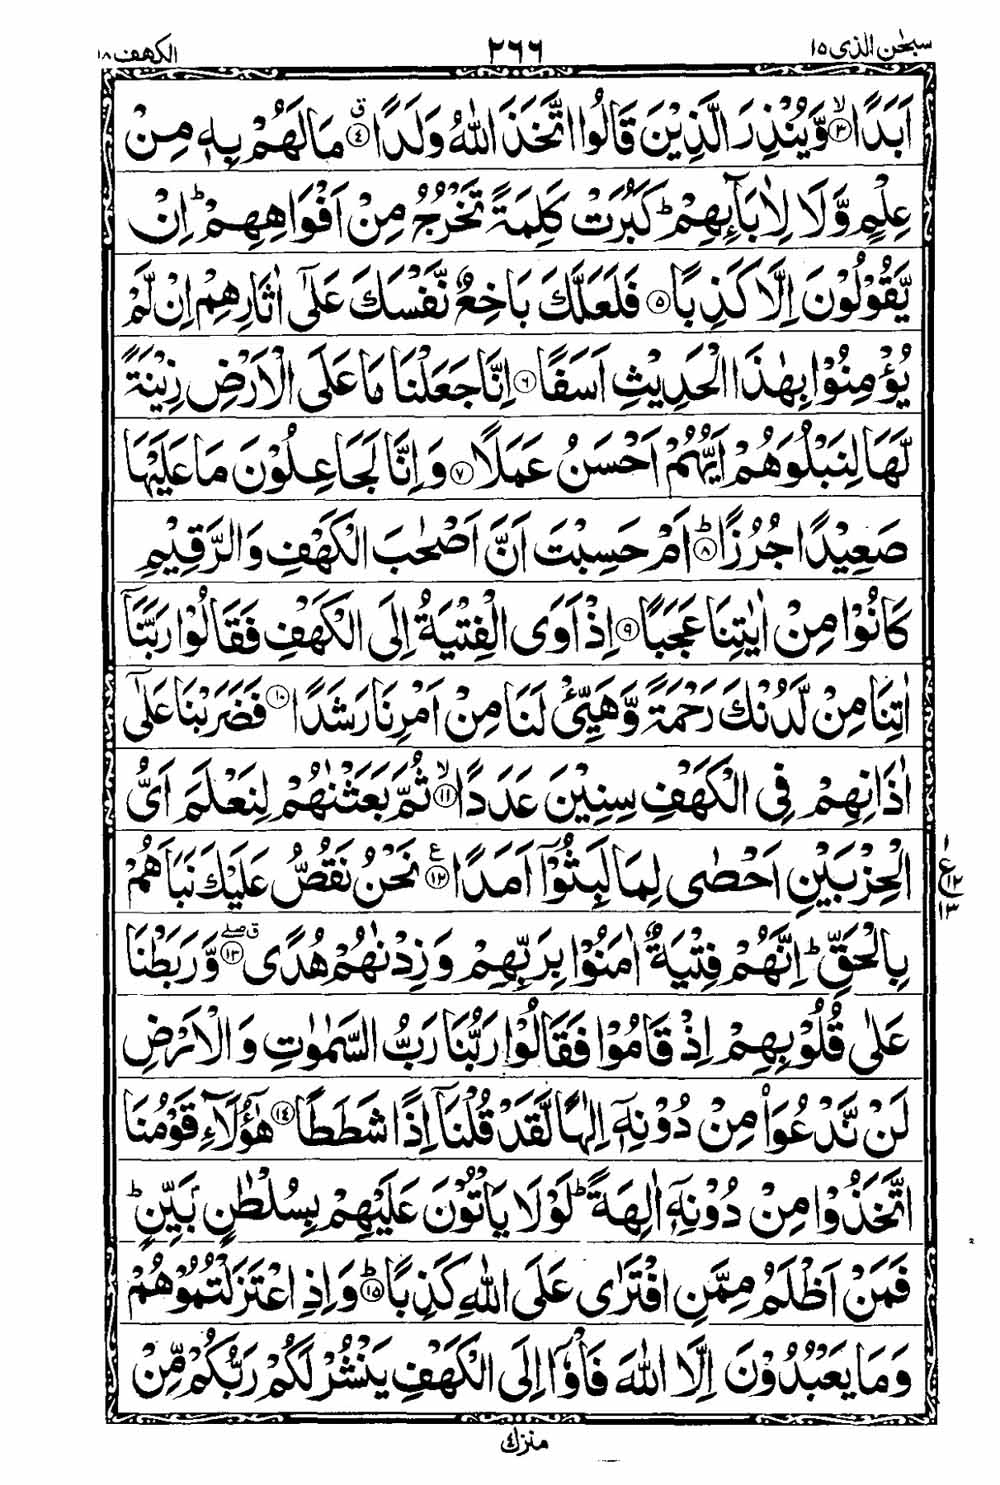 سبحٰن الذی ۱۵ ۲۶۶ الکهف ۱۸
اَبَدًا ۙ﴿۳﴾ وَّيُنْذِرَ الَّذِيْنَ قَالُوا اتَّخَذَ اللّٰهُ وَلَدًا ۗ﴿۴﴾ مَا لَهُمْ بِهٖ مِنْ
عِلْمٍ وَّلَا لِاٰبَآئِهِمْ ؕ كَبُرَتْ كَلِمَةً تَخْرُجُ مِنْ اَفْوَاهِهِمْ ؕ اِنْ
يَّقُوْلُوْنَ اِلَّا كَذِبًا ﴿۵﴾ فَلَعَلَّكَ بَاخِعٌ نَّفْسَكَ عَلٰٓى اٰثَارِهِمْ اِنْ لَّمْ
يُؤْمِنُوْا بِهٰذَا الْحَدِيْثِ اَسَفًا ﴿۶﴾ اِنَّا جَعَلْنَا مَا عَلَى الْاَرْضِ زِيْنَةً
لَّهَا لِنَبْلُوَهُمْ اَيُّهُمْ اَحْسَنُ عَمَلًا ﴿۷﴾ وَاِنَّا لَجَاعِلُوْنَ مَا عَلَيْهَا
صَعِيْدًا جُرُزًا ؕ﴿۸﴾ اَمْ حَسِبْتَ اَنَّ اَصْحٰبَ الْكَهْفِ وَالرَّقِيْمِ
كَانُوْا مِنْ اٰيٰتِنَا عَجَبًا ﴿۹﴾ اِذْ اَوَى الْفِتْيَةُ اِلَى الْكَهْفِ فَقَالُوْا رَبَّنَآ
اٰتِنَا مِنْ لَّدُنْكَ رَحْمَةً وَّهَيِّئْ لَنَا مِنْ اَمْرِنَا رَشَدًا ﴿۱۰﴾ فَضَرَبْنَا عَلٰٓى
اٰذَانِهِمْ فِى الْكَهْفِ سِنِيْنَ عَدَدًا ۙ﴿۱۱﴾ ثُمَّ بَعَثْنٰهُمْ لِنَعْلَمَ اَىُّ
الْحِزْبَيْنِ اَحْصٰى لِمَا لَبِثُوْٓا اَمَدًا ﴿۱۲﴾ع نَحْنُ نَقُصُّ عَلَيْكَ نَبَاَهُمْ
۱ ع ۱۲ ۱۳
بِالْحَقِّ ؕ اِنَّهُمْ فِتْيَةٌ اٰمَنُوْا بِرَبِّهِمْ وَزِدْنٰهُمْ هُدًى ۗۖ﴿۱۳﴾ وَّرَبَطْنَا
عَلٰى قُلُوْبِهِمْ اِذْ قَامُوْا فَقَالُوْا رَبُّنَا رَبُّ السَّمٰوٰتِ وَالْاَرْضِ
لَنْ نَّدْعُوَا۟ مِنْ دُوْنِهٖٓ اِلٰهًا لَّقَدْ قُلْنَآ اِذًا شَطَطًا ﴿۱۴﴾ هٰٓؤُلَآءِ قَوْمُنَا
اتَّخَذُوْا مِنْ دُوْنِهٖٓ اٰلِهَةً ؕ لَوْلَا يَاْتُوْنَ عَلَيْهِمْ بِسُلْطٰنٍۭ بَيِّنٍ ؕ
فَمَنْ اَظْلَمُ مِمَّنِ افْتَرٰى عَلَى اللّٰهِ كَذِبًا ؕ﴿۱۵﴾ وَاِذِ اعْتَزَلْتُمُوْهُمْ
وَمَا يَعْبُدُوْنَ اِلَّا اللّٰهَ فَاْوٗٓا اِلَى الْكَهْفِ يَنْشُرْ لَكُمْ رَبُّكُمْ مِّنْ
منزل ۴